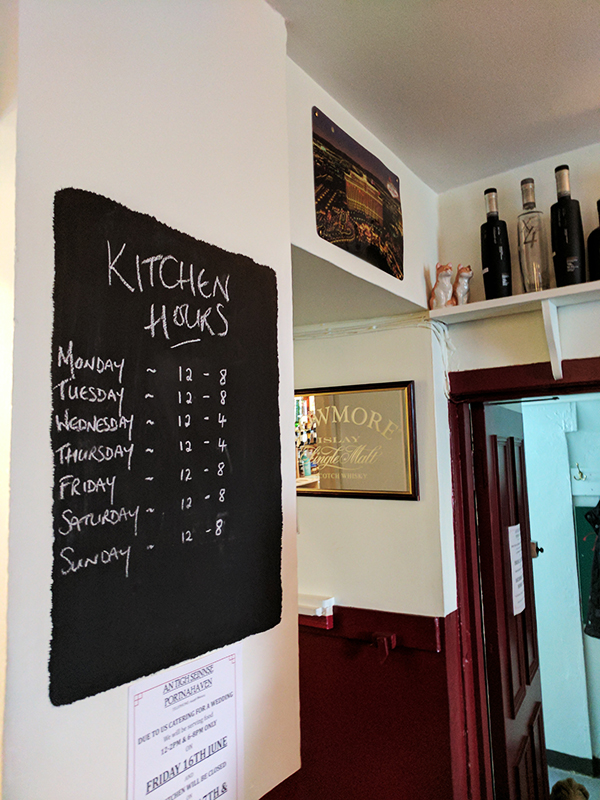 KITCHEN
HOURS
MONDAY ~ 12 - 8
TUESDAY ~ 12 - 8
WEDNESDAY ~ 12 - 4
THURSDAY ~ 12 - 4
FRIDAY ~ 12 - 8
SATURDAY ~ 12 - 8
SUNDAY ~ 12 - 8
WMORE
ISLAY
Single Malt
SCOTCH WHISKY
AN TIGH SEINNSE
PORTNAHAVEN
DUE TO US CATERING FOR A WEDDING
We will be serving food
12-2PM & 6-8PM ONLY
ON
FRIDAY 16TH JUNE
AND
KITCHEN WILL BE CLOSED
ON
7TH &